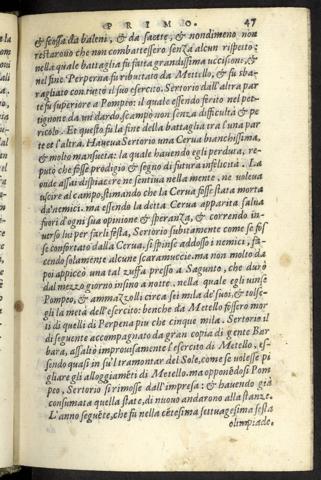 PRIMO. 47
& scossa da baleni, & da saette, & nondimeno non
restarono che non combattessero senza alcun rispetto:
nella quale battaglia fu fatta grandissima uccisione, &
nel fine Perpenna fu ributtato da Metello, & fu sba-
ragliato con tutto il suo esercito. Sertorio dall'altra par
te fu superiore a Pompeo: il quale essendo ferito nel pet-
tignone da un dardo, scampò non senza difficultà & pe
ricolo. Et questo fu la fine della battaglia tra l'una par
te et l'altra. Haueua Sertorio una Cerua bianchissima,
& molto mansueta: la quale hauendo egli perduta, re-
putò che fosse prodigio & segno di futura infelicità. La
onde assai dispiacere ne sentiua nella mente, ne voleua
uscire al campo, stimando che la Cerua fosse stata morta
da'nemici. ma essendo la detta Cerua apparita salua
fuori d'ogni sua opinione & speranza, & correndo in-
uerso lui per farli festa, Sertorio subitamente come se fos
se confortato dalla Cerua, si spinse addosso i nemici, fa-
cendo solamente alcune scaramuccie. ma non molto da
poi appiccò una tal zuffa presso a Sagunto, che durò
dal mezzo giorno insino a notte. nella quale egli uinse
Pompeo, & ammazzolli circa sei mila de'suoi, & tolse-
gli la metà dell'esercito: benche da Metello fossero mor
ti di quelli di Perpena piu che cinque mila. Sertorio il
dì seguente accompagnato da gran copia di gente Bar
bara, assaltò improuisamente l'esercito di Metello, es-
sendo quasi in su'l tramontar del Sole, come se uolesse pi
gliare gli alloggiamẽti di Metello. ma opponẽdosi Pom
peo, Sertorio si rimosse dall'impresa: & hauendo già
consumata quella state, di nuouo andarono alla stanze.
L'anno seguẽte, che fù nella cẽtesima settuagesima sesta
olimpiade.